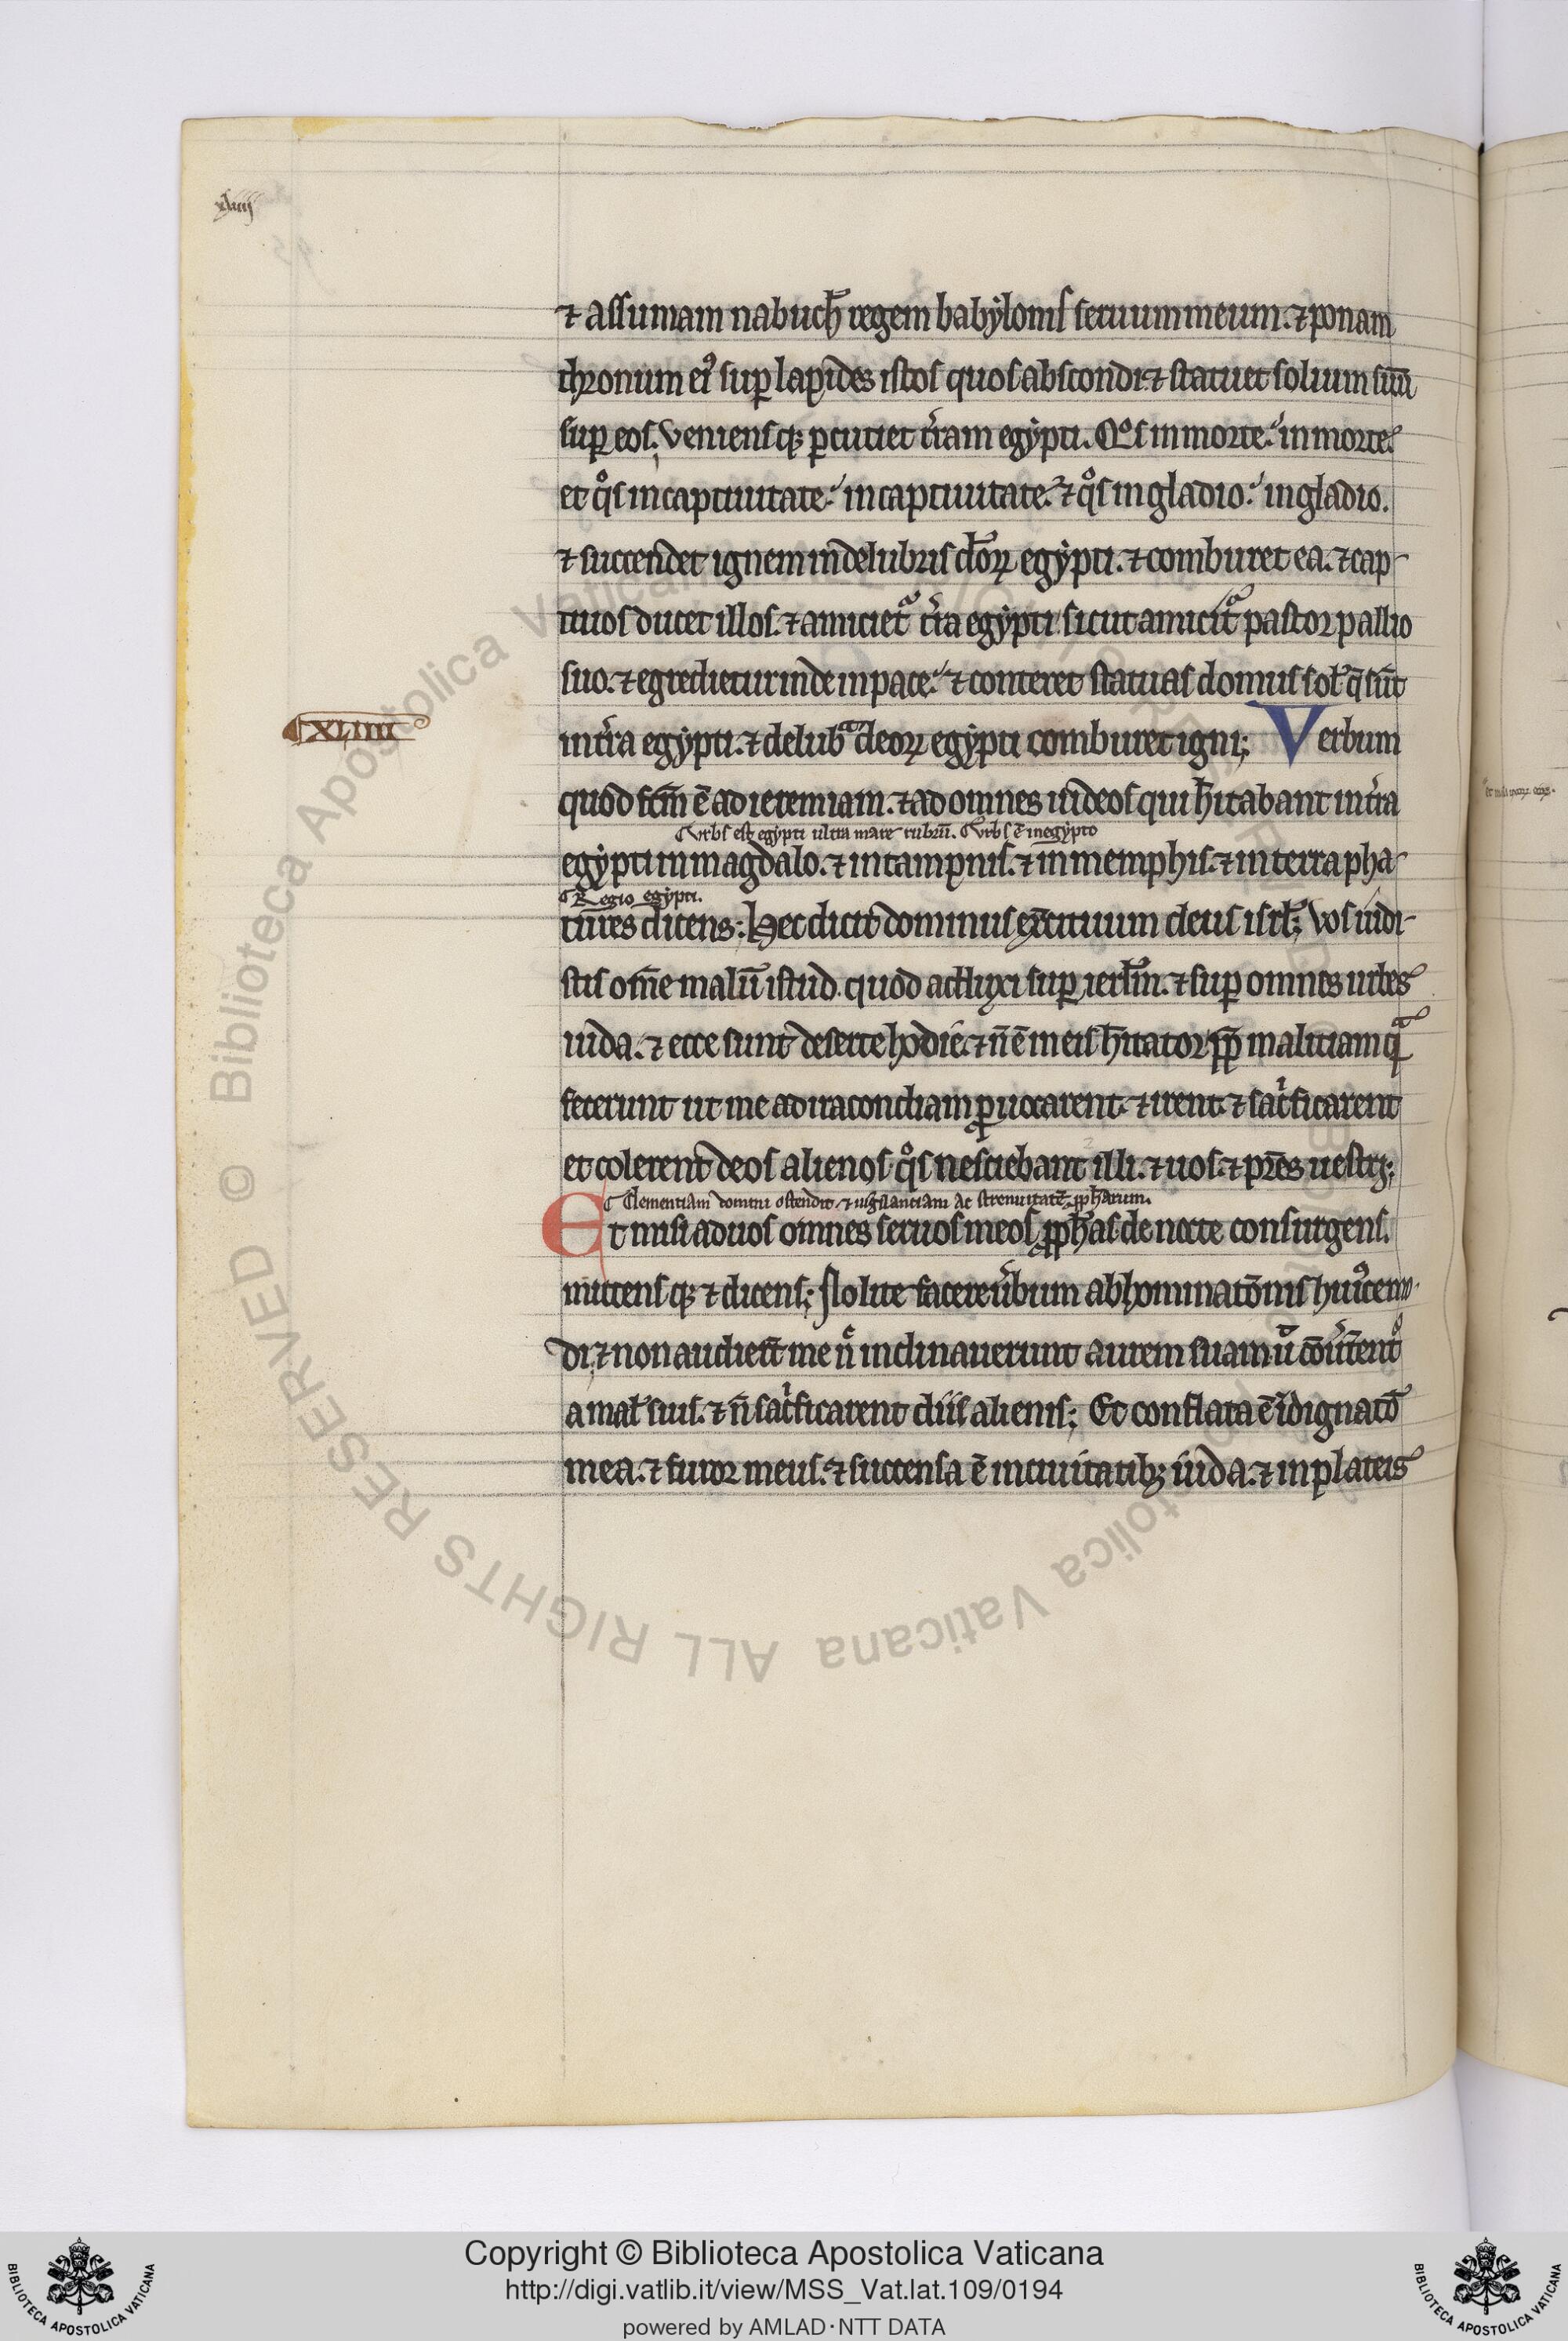 xliiii
⁊ assumam nabuch̄ regem babylonis seruum meum. ⁊ ponam
thronum ei᷒ sup̱ lapides istos quos abscondi ⁊ statuet solium suū
sup̱ eos. veniensq; p̱cutiet t̄ram egypti. Q̊s in morte. in morte.
et q̊s in captiuitate. in captiuitate. ⁊ q̊s in gladio. in gladio.
⁊ succendet ignem in delubris dōꝝ egypti. ⁊ comburet ea. ⁊ cap-
tiuos ducet illos. ⁊ amiciet᷑ t̄ra egypti sicut amicit᷑ pastor pallio
suo. ⁊ egredietur inde in pace. ⁊ conteret statuas domus sol̄ q̄ sūt
XLIIII
in t̄ra egypti. ⁊ delubᵃ deoꝝ egypti comburet igni; Verbum
quod fc̄m ē ad ieremiam. ⁊ ad omnes iudeos qui h̄itabant in t̄ra
Urbs est egypti ultra mare rubrū. Urbs ē in egypto
egypti in magdalo. ⁊ in tampnis. ⁊ in memphis. ⁊ in terra pha-
Regio egypti.
tures dicens; Hec dicit dominus exc̄ituum deus isrl̄; Vos uidi-
stis om̄e malū istud quod adduxi sup̱ ierl̄m. ⁊ sup̱ omnes urbes
iuda. ⁊ ecce sunt deserte hodie. ⁊ n̄ ē in eis h̄itator pp̄ malitiam qᵃ̄
fecerunt ut me ad iracondiam ꝓuocarent. ⁊ irent. ⁊ sacⁱficarent
et colerent deos alienos q̊s nesciebant illi. ⁊ uos. ⁊ pr̄es uestri;
Clementiam domini ostendit. ⁊ uigilanciam ac strenuitatē ꝓph̄arum.
Et misi ad uos omnes seruos meos ꝓph̄as de nocte consurgens.
mittensq; ⁊ dicens; Nolite facere ūbum abhominatōnis hui᷒cemo-
di. ⁊ non audier̄t me n̄ inclinauerunt aurem suam ū cōūtent᷑
a mal̄ suis. ⁊ n̄ sacⁱficarent diis alienis; Et conflata ē īdignatō
mea. ⁊ furor meus. ⁊ succensa ē in ciuitatibꝫ iuda. ⁊ in plateis
© Biblioteca Apostolica Vaticana ALL RIGHTS RESERVED
Copyright © Biblioteca Apostolica Vaticana
http://digi.vatlib.it/view/MSS_Vat.lat.109/0194
powered by AMLAD·NTT DATA
BIBLIOTECA APOSTOLICA VATICANA
BIBLIOTECA APOSTOLICA VATICANA